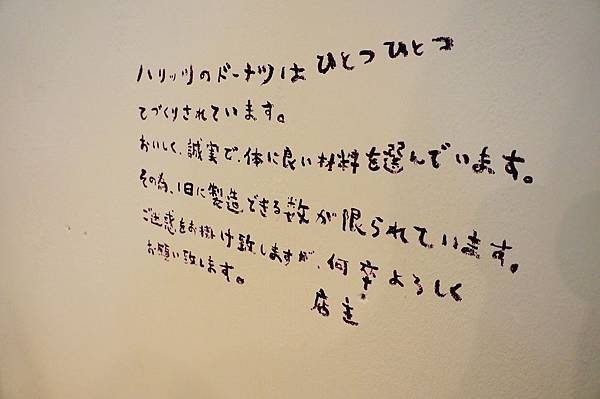 ハリッツのドーナツは ひとつひとつ
てづくりされています。
おいしく、誠実で、体に良い材料を選んでいます。
その為、1日に製造できる数が限られています。
ご迷惑をお掛け致しますが、何卒よろしく
お願い致します。
店主